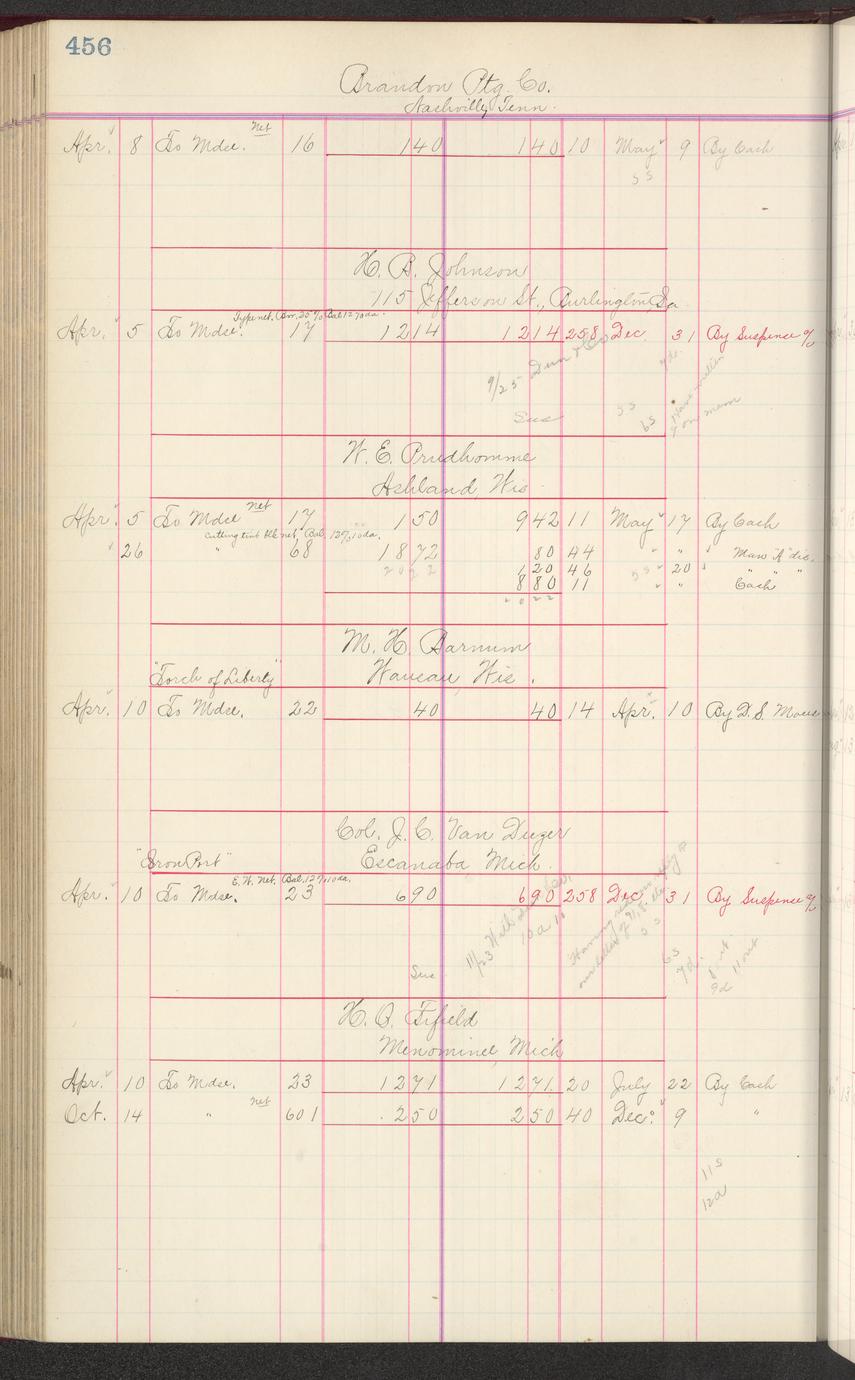 456
Brandon Ptg. Co.
Nashville, Tenn.
Net
Apr. 8 To Mdse. 16 140 140 10 May 9 By Cash
5 S
H. B. Johnson
115 Jefferson St., Burlington, Ia
Type net.
Apr. 5 To Mdse. 17 1214 1214 258 Dec. 31 By Suspense %
9/25 Dun & Co
Sus
5 S
6 S
W. E. Prudhomme
Ashland Wis
net
Apr. 5 To Mdse 17 150 942 11 May 17 By Cash
Cutting tint blk net, Bal. 12%10da.
26 " 68 1872 80 44 " " Man "A" dis.
2022 120 46 5 S " 20 " " "
880 11 " " Cash
2022
M. H. Barnum
"Torch of Liberty" Wausau, Wis.
Apr. 10 To Mdse. 22 40 40 14 Apr. 10 By D. S.
Col. J. C. Van Duzer
"Iron Port" Escanaba Mich.
E. W. Net. Bal. 12%10da.
Apr. 10 To Mdse. 23 690 690 258 Dec. 31 By Suspense %
11/23 Will
10 a 11
5 S
6 S
7 d
Sus
9d
H. O. Fifield
Menominee, Mich
Apr. 10 To Mdse. 23 1271 1271 20 July 22 By Cash
net
Oct. 14 " 601 250 250 40 Dec. 9 "
11 S
12 a